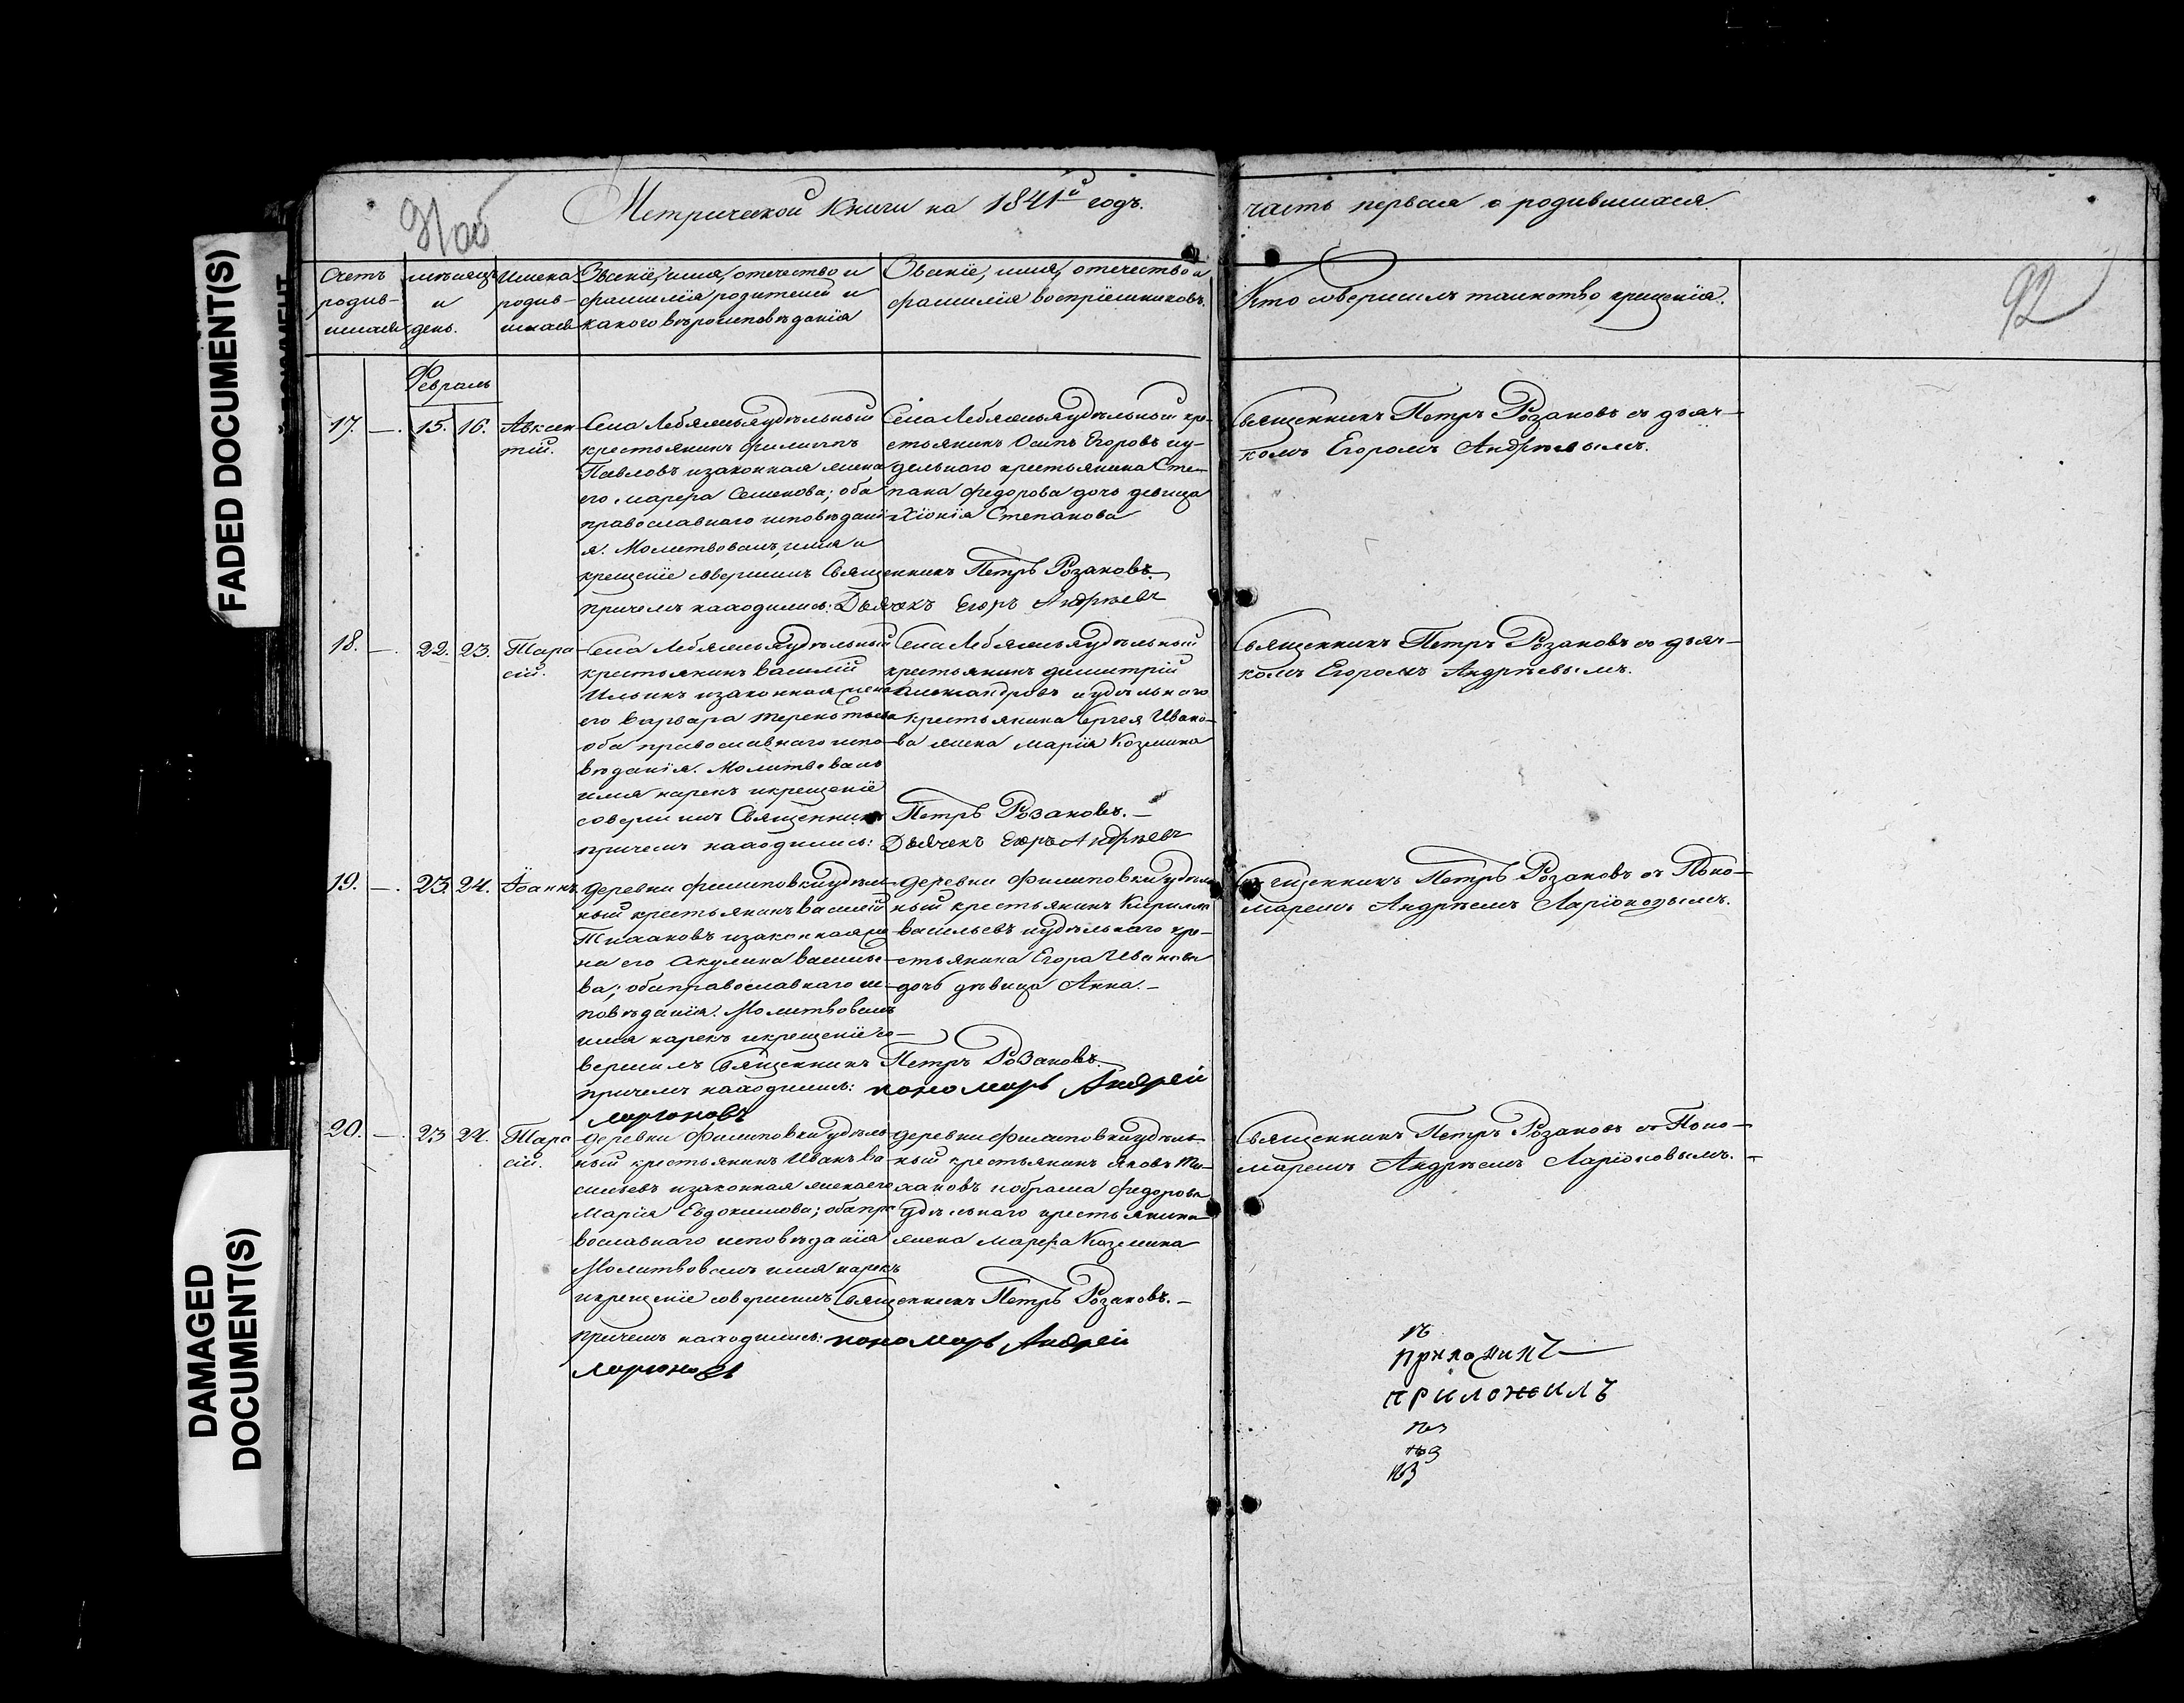 FADED DOCUMENT(S)
DAMAGED
DOCUMENT(S)
91 об
Метрической Книги на 1841й годъ.
часть первая о родившихся.
92
Счетъ
родив-
шихся
мѣсяцъ
и
день.
Имена
родив-
шихся
Званіе, имя, отечество и
фамилія родителей и
какого вѣроисповѣданія
Званіе, имя, отечество и
фамилія воспріемниковъ.
Кто совершилъ таинство крещенія.
Февраль
17. —. 15. 16.
Авксен-
тій.
Села Лебяжья удѣльный
крестьянинъ Филиппъ
Павловъ и законная жена
его Марфа Семенова; оба
православнаго исповѣдані-
я. Молитвовалъ, имя и
крещеніе совершилъ Священникъ Петръ Розановъ.
причемъ находились: Дьячекъ Егоръ Андреевъ
Села Лебяжья удѣльный кре-
стьянинъ Осипъ Егоровъ и у-
дельнаго крестьянина Сте-
пана Федорова дочь девица
Хіонія Степанова
Священникъ Петръ Розановъ съ дьяч-
комъ Егоромъ Андреевымъ.
18. —. 22. 23.
Тара-
сій.
Села Лебяжья удѣльный
крестьянинъ Василій
Ильинъ и законная жена
его Варвара Терентьева
оба православнаго испо-
вѣданія. Молитвовалъ
имя нарекъ и крещеніе
совершилъ Священникъ Петръ Розановъ. —
причемъ находились: Дьячекъ Егоръ Андреевъ
Села Лебяжья удѣльный
крестьянинъ Димитрій
Александровъ и удѣльнаго
крестьянина Сергея Ивано-
ва жена Марія Козмина
Священникъ Петръ Розановъ со дьяч-
комъ Егоромъ Андреевымъ.
19. —. 23. 24.
Іоаннъ
деревни Филиповки удѣль-
ный крестьянинъ Василій
и законная же-
на его Акулина Василье-
ва; оба православнаго ис-
повѣданія. Молитвовалъ
имя нарекъ и крещеніе со-
вершилъ Священникъ Петръ Розановъ.
причемъ находились: пономарь Андрей
Ларіоновъ
деревни Филиповки удѣль-
ный крестьянинъ Кирилла
Васильевъ и удѣльнаго кре-
стьянина Егора Иванова
дочь дѣвица Анна. —
Священникъ Петръ Розановъ съ Поно-
маремъ Андреемъ Ларіоновымъ.
20. —. 23 24.
Тара-
сій.
деревни Филиповки удѣль-
ный крестьянинъ Иванъ Ва-
сильевъ и законная жена его
Марія Евдокимова; оба пра-
вославнаго исповѣданія
Молитвовалъ имя нарекъ
и крещеніе совершилъ Священникъ Петръ Розановъ. —
причемъ находились: пономарь Андрей
Ларіоновъ
деревни Филиповки удѣль-
ный крестьянинъ Яковъ
Федорова
удѣльнаго крестьянина
жена Марфа Козмина
Священникъ Петръ Розановъ съ Поно-
маремъ Андреемъ Ларіоновымъ. —
приложилъ
приложилъ